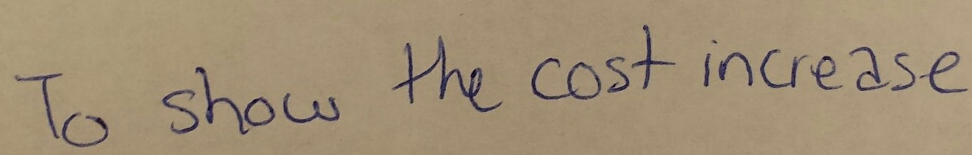 To show the cost increase